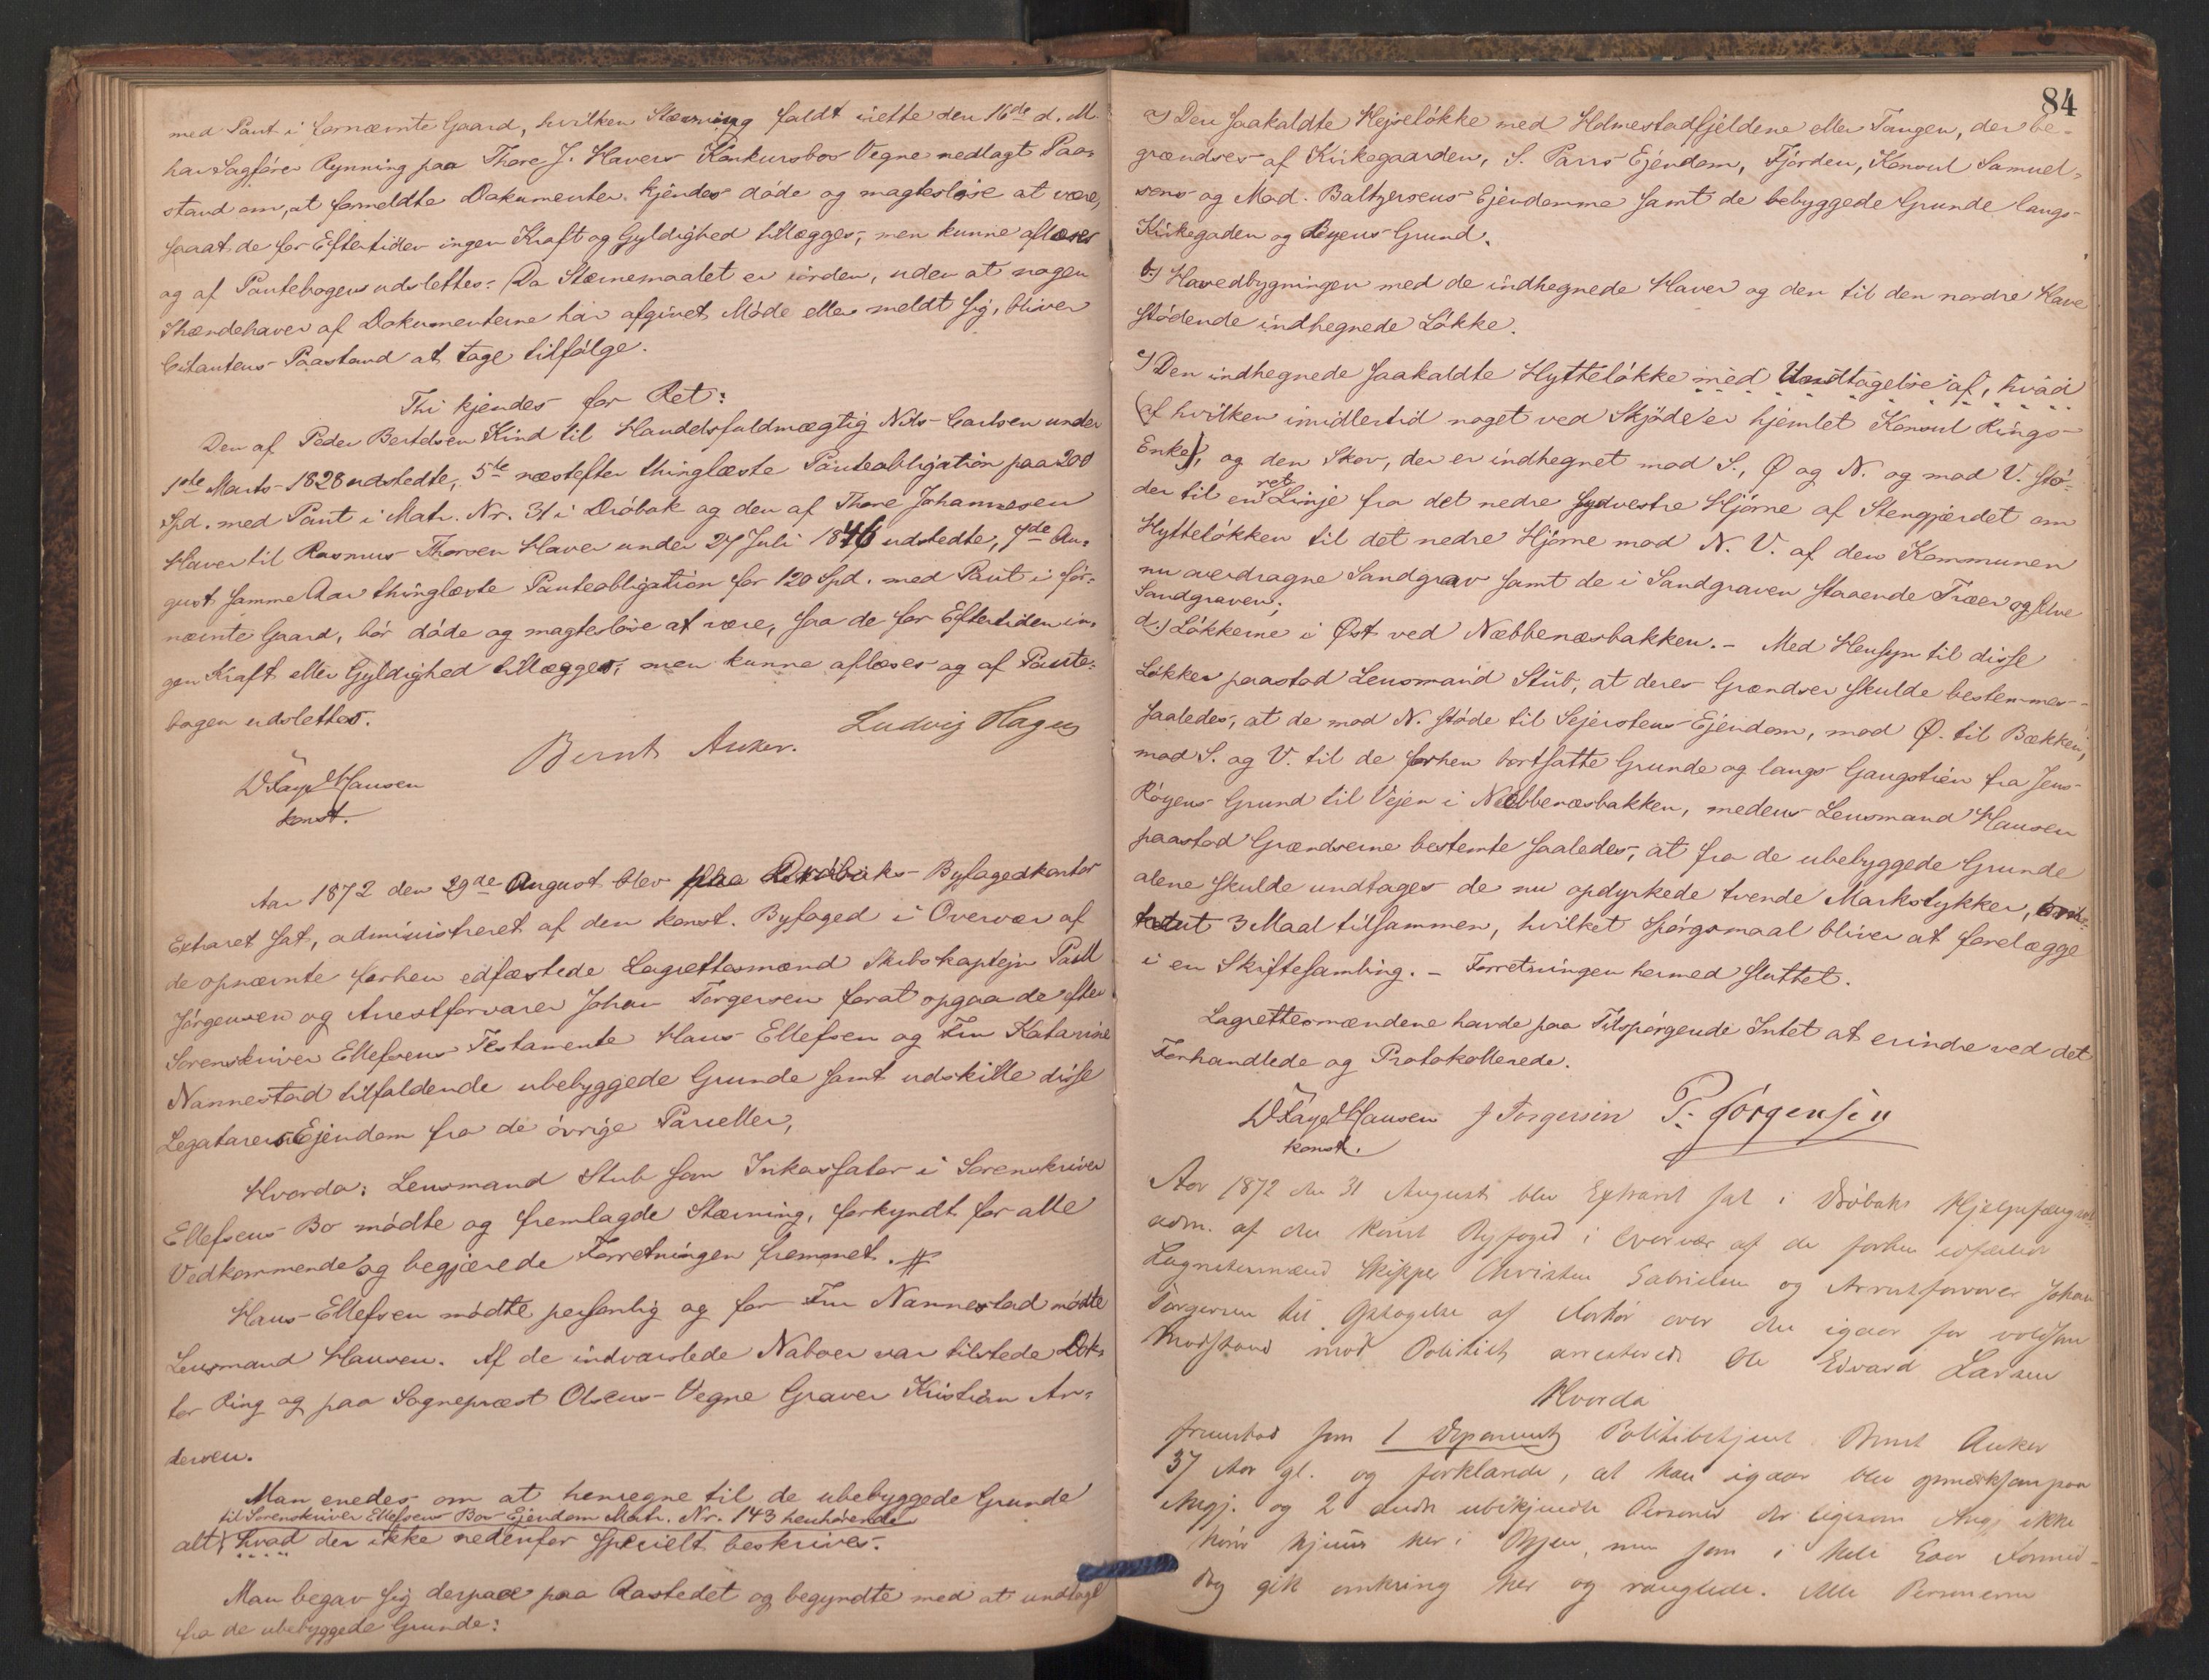 med Pant i fornævnte Gaard, hvilken Stævning faldt irette den 16de d. M.
har Sagfører Rynning paa Thore J. Havers Konkursbos Vegne nedlagt Paa-
stand om, at formeldte Dokumenter kjendes døde og magtesløse at være,
saaat de for Eftertiden ingen Kraft og Gyldighed tillægges, men kunne aflæses
og af Pantebogen udslettes. Da Stævnemaalet er iorden, uden at nogen
Ihændehaver af Dokumenterne har afgivet Møde eller meldt sig, bliver
Citantens Paastand at tage tilfølge.
Thi kjendes for Ret:
Den af Peder Bertelsen Kind til Handelsfuldmægtig Nils Carlsen under
1ste Marts 1828 udstedte, 5te næstefter thinglæste Panteobligation paa 200
Spd. med Pant i Matr. Nr. 31 i Drøbak og den af Thore Johannesen
Haver til Rasmus Thorsen Haver under 27 Juli 1846 udstedte, 7de Au-
gust samme Aar thinglæste Panteobligation for 120 Spd. med Pant i for-
nævnte Gaard, bør døde og magtesløse at være, saa de for Eftertiden in-
gen Kraft eller Gyldighed tillægges, men kunne aflæses og af Pante-
bogen udslettes.
Bernt Anker. Ludvig Hagen
D Faye Hansen
konst.
Aar 1872 den 29de August blev paa Drøbaks Byfogedkontor
Extraret sat, administreret af den konst. Byfoged i Overvær af
de opnævnte forhen edfæstede Lagrettesmænd Skibskaptejn Paul
Jørgensen og Arrestforvarer Johan Torgersen forat opgaa de efter
Sorenskriver Ellefsens Testamente Hans Ellefsen og Fru Katarine
Nannestad tilfaldende ubebyggede Grunde samt udskille disse
Legatarers Ejendom fra de øvrige Parceller,
Hvorda: Lensmand Stub som Inkassator i Sorenskriver
Ellefsens Bo mødte og fremlagde Stævning, forkyndt for alle
Vedkommende og begjærede Forretningen fremmet. #
Hans Ellefsen mødte personlig og for Fru Nannestad mødte
Lensmand Hansen. Af de indvarslede Naboer var tilstede Dok-
tor Ring og paa Sognepræst Olsens Vegne Graver Kristian An-
dersen.
Man enedes om at henregne til de ubebyggede Grunde
til Sorenskriver Ellefsens Bos Ejendom Matr. Nr. 143 henhørende
alt, hvad der ikke nedenfor specielt beskrives.
Man begav sig derpaa paa Aastedet og begyndte med at undtage
fra de ubebyggede Grunde:
84
a) Den saakaldte Hejseløkke med Holmestadfjeldene eller Tangen, der be-
grændses af Kirkegaarden, S. Parrs Ejendom, Fjorden, Konsul Samuel-
sens og Mad. Baltzersens Ejendomme samt de bebyggede Grunde langs
Kirkegaden og Byens Grund.
b.) Hovedbygningen med de indhegnede Haver og den til den nordre Have
stødende indhegnede Løkke.
c) Den indhegnede saakaldte Hytteløkke med Undtagelse af, hvad
(af hvilken imidlertid noget ved Skjøde er hjemlet Konsul Rings
Enke), og den Skov, der er indhegnet mod S., Ø og N. og mod V. stø-
der til en ret Linje fra det nedre sydvestre Hjørne af Stengjærdet om
Hytteløkken til det nedre Hjørne mod N. V. af den Kommunen
nu overdragne Sandgrav samt de i Sandgraven staaende Træer og selve
Sandgraven;
d.) Løkkerne i Øst ved Næbbenæsbakken. - Med Hensyn til disse
Løkker paastod Lensmand Stub, at deres Grændser skulde bestemmes
saaledes, at de mod N. støde til Sejerstens Ejendom, mod Ø. til Bækken,
mod S. og V. til de forhen bortsatte Grunde og langs Gangstien fra Jens
Røyens Grund til Vejen i Næbbenæsbakken, medens Lensmand Hansen
paastod Grændserne bestemte saaledes, at fra de ubebyggede Grunde
alene skulde undtages de nu opdyrkede tvende Markstykker, omtr-
3 Maal tilsammen, hvilket Spørgsmaal bliver at forelægge
i en Skiftesamling. - Forretningen hermed sluttet.
Lagrettesmændene havde paa Tilspørgende Intet at erindre ved det
Forhandlede og Protokollerede.
D Faye Hansen J Torgersen P. Jørgensen
konst.
Aar 1872 den 31 August blev Extraret sat i Drøbaks Hjelpefængsel
adm. af den konst Byfoged i Overvær af de forhen edfæstede
Lagrettesmænd Skipper Christen Gabrielsen og Arrestforvarer Johan
Torgersen til Optagelse af Forhør over den igaar for voldsom
Modstand mod Politiet arresterede Ole Edvard Larsen
Hvorda
fremstod som 1 Deponent Politibetjent Bernt Anker
37 Aar gl. og forklarede, at han igaar blev opmærksom paa
Angj. og 2 andre ubekjendte Personer der ligesom Angj ikke
høre hjemme her i Byen, men som i hele Formid-
dag gik omkring her og ranglede. Alle Personerne